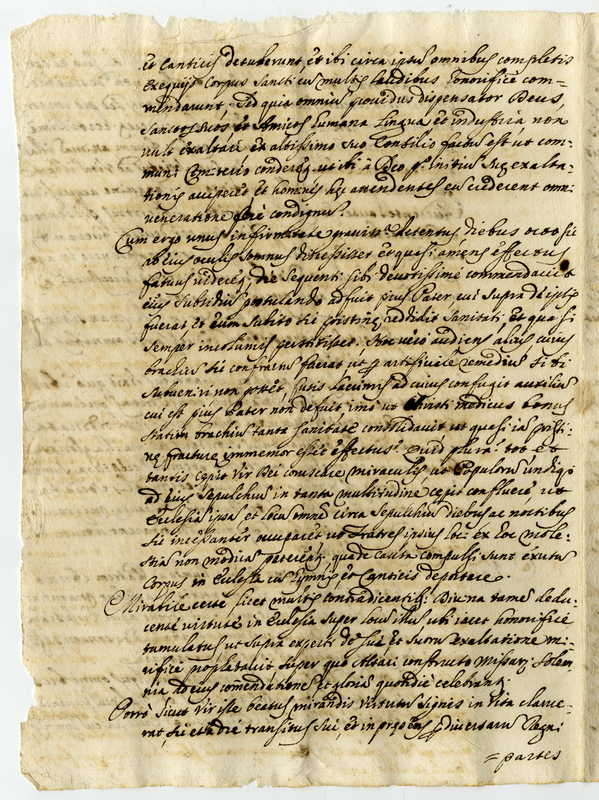 et Canticis detulerunt, et ibi circa ipsũ omnibus completis
exequijs Corpus Sancti cũ multis laudibus honorificè com-
mendarunt. Sed quia omniũ prouidus dispensator Deus,
Sanctos suos et Amicos humana lingua et industria non
vult exaltare ex altissimo suo Consilio factũ est, ut com-
muni Cemiterio conderet, ut ibi à Deo initiũ suę exalta-
tionis acciperet et homines hęc attendentes eũ crederent omni
veneratione fore condignũ.
Cum ergo unus infirmitate grauiss.ᵃ detentus diebus octo sic
ab eius oculis somnus discessisset et quasi amens effectus
fatuus uideret, die sequenti sibi deuotissimè commendauit
eius subsidiũ postulando adfuit pius Pater cui supra
fuerat et eum subito sic pristinę reddidit sanitati et quasi
semper incolumis perstitisset. Hoc uerò audiens alius cuius
brachiũ sic confractũ fuerat ut artificiale remediũ sibi
subueniri non posset, fusis lacrimis ad eius confugit auxiliũ
cui et pius Pater non defuit, imò ut Christi medicus bonus
statim brachiũ tanta sanitate consolidauit ut quasi iã pristi-
nę fracturę immemor esset effectus. Quid plura? tot et
tantis cepit Vir Dei coruscare miraculis, ut Populorũ undiqꝫ
ad eius Sepulchrũ in tanta multitudine cepit confluere ut
Ecclesiã ipsã et locũ omnẽ circa Sepulchrũ diebus ac noctibus
sic incessanter occuparet ut Fratres ipsius loci ex hoc mole-
stias non modicas paterent, quade causa compulsi sunt exutũ
Corpus in Ecclesia cũ hymnis et Canticis deportare.
Mirabile certe licet multis contradicentibus Diuina tamẽ dedu-
cente uirtute in Ecclesia super locũ illũ ubi iacet honorificè
tumulatus ut supra de sua et suorũ exaltatione mi-
rificè prophetauit super quo Altari constructo Missarũ solem-
nia ad eius com̃endationẽ et gloriã quotidie celebrant.
Porrò sicut Vir iste beatus mirandis uirtutũ signis in uita clarue-
rat, sic et a die transitus sui, et in pręsens diuersarũ Regni
= partes